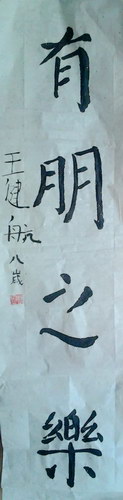 有朋之樂
王健航八歲